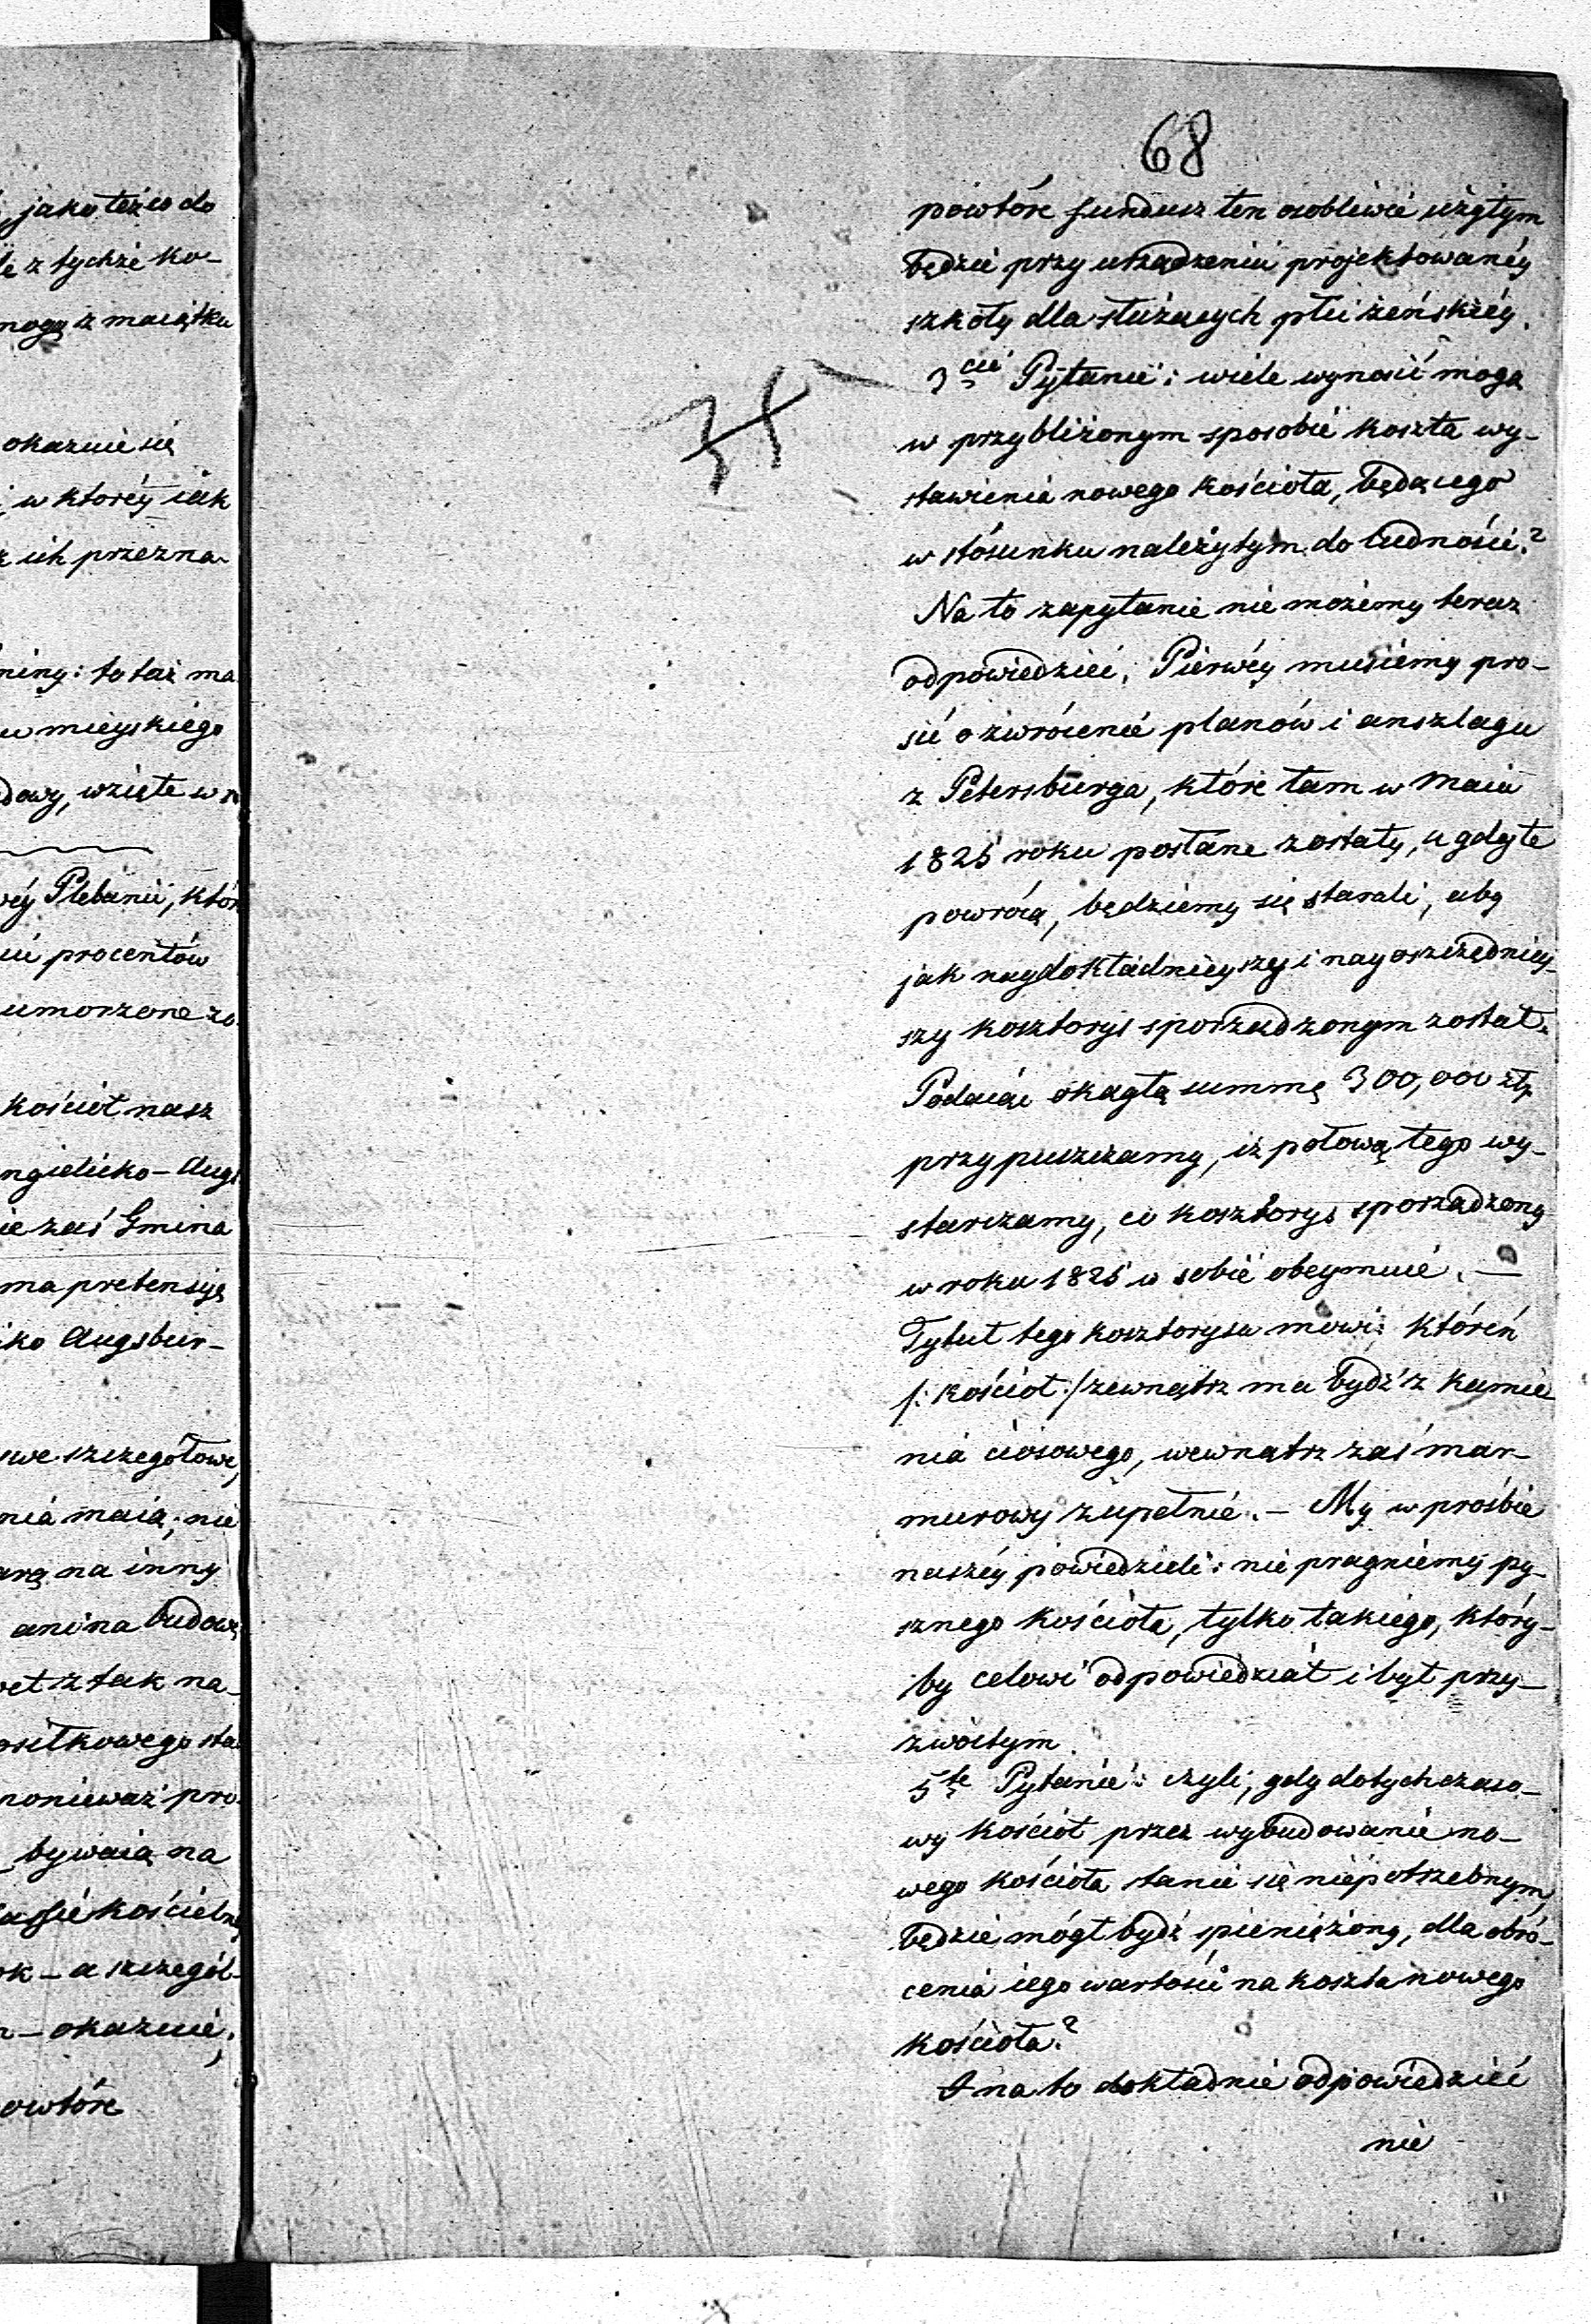 jako też co do
z tychże ko-
mogą z maiątku
okazuie się
w któréy iak
ich przezna-
miny: to też ma
mieyskiego
dowy, wzięte w
wéy Plebanii, któr
procentów
umorzone zo-
kościół nasz
ngielicko-Augs
ie zaś Gmina
ma pretensyę
iko Augsbur-
swe szczegółowe,
nia maią; nie
arę na inny
ani na budowę
wet z tak na-
osiłkowego sta
ponieważ pro-
bywaią na
Kassie kościelné
ok - a szczegól-
- okazuie,
owtóre
68
powtóre fundusz ten osobliwie użytym
będzie przy urządzeniu projektowanéy
szkoły dla służących płci żeńskiéy.
3cie Pytanie: wiele wynosić mogą
w przybliżonym sposobie koszta wy-
stawienia nowego kościoła, będącego
w stósunku należytym do ludności?
Na to zapytanie nie możemy teraz
odpowiedzieć. Pierwéy musiemy pro-
sić o zwrócenie planów i anszlagu
z Petersburga, które tam w Maiu
1825 roku posłane zostały, a gdy te
powrócą, będziemy się starali, aby
jak naydokładnieyszy i nayoszczędniey-
szy kosztorys sporządzonym został.
Podaiąc okągłą summę 300,000 złp
przypuszczamy, iż połową tego wy-
starczamy, co kosztorys sporządzony
w roku 1825 w sobie obeymuie. —
Tytuł tego kosztorysu mówi: któren
/: kościoł :/ zewnątrz ma bydź z kamie
nia ciosowego, wewnątrz zaś mar-
murowy zupełnie. - My w prośbie
naszéy powiedzieli: nie pragniemy py-
sznego kościoła, tylko takiego, który-
by celowi odpowiedział i był przy-
zwoitym.
5te Pytanie: czyli, gdy dotychczaso-
wy kościół przez wybudowanie no-
wego kościoła stanie się niepotrzebnym,
będzie mógł bydź spieniężony, dla obró-
cenia iego wartości na koszta nowego
kościoła?
I na to dokładnie odpowiedzieć
nie